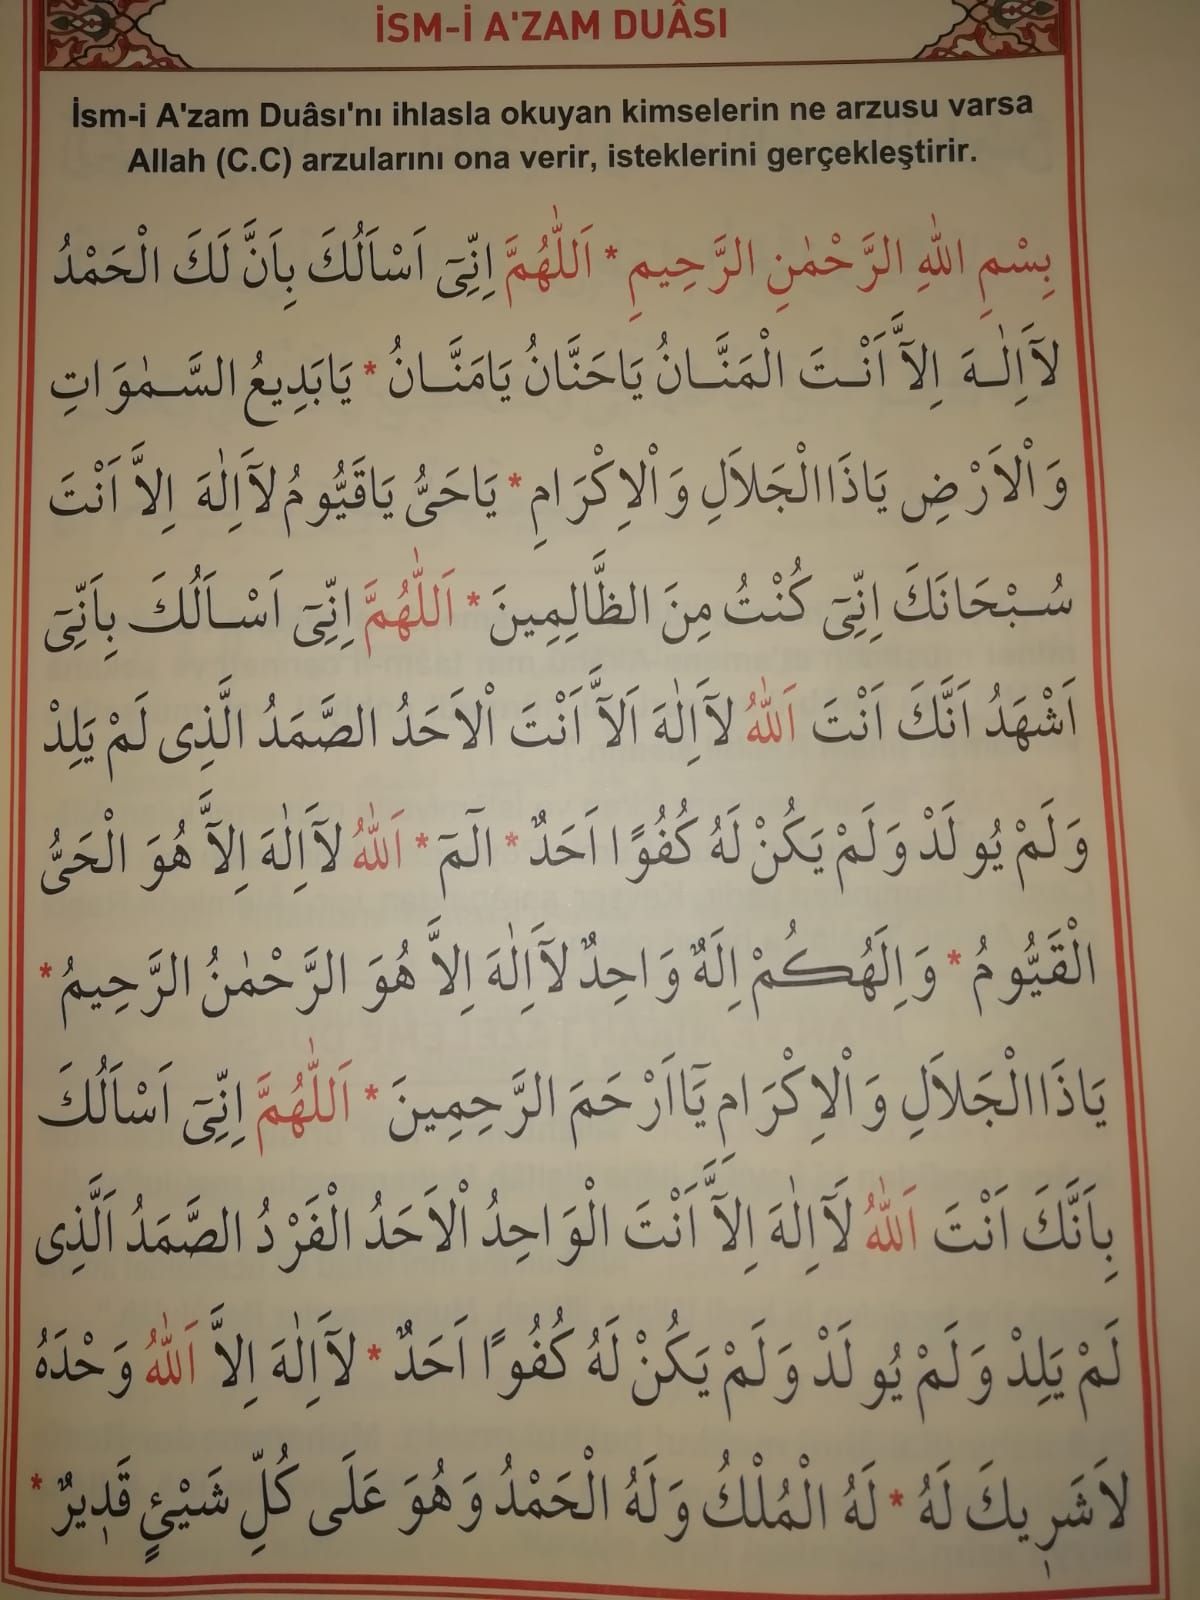 İSM-İ A'ZAM DUÂSI
İsm-i A'zam Duâsı'nı ihlasla okuyan kimselerin ne arzusu varsa
Allah (C.C) arzularını ona verir, isteklerini gerçekleştirir.
بِسْمِ اللهِ الرَّحْمٰنِ الرَّحِيمِ * اَللّٰهُمَّ اِنِّىٓ اَسْاَلُكَ بِاَنَّ لَكَ الْحَمْدُ
لَآ اِلٰـهَ اِلَّآ اَنْـتَ الْمَنَّـانُ يَاحَنَّانُ يَامَنَّـانُ * يَابَدِيعُ السَّـمٰوَاتِ
وَالْاَرْضِ يَاذَاالْجَلاَلِ وَالْاِكْرَامِ * يَاحَىُّ يَاقَيُّومُ لَآ اِلٰهَ اِلاَّ اَنْتَ
سُـبْحَانَكَ اِنِّىٓ كُنْتُ مِنَ الظَّالِمِينَ * اَللّٰهُمَّ اِنِّىٓ اَسْـاَلُكَ بِاَنِّىٓ
اَشْهَدُ اَنَّكَ اَنْتَ اَللّٰهُ لَآ اِلٰهَ اَلَّآ اَنْتَ الْاَحَدُ الصَّمَدُ الَّذِى لَمْ يَلِدْ
وَلَمْ يُولَدْ وَلَمْ يَكُنْ لَهُ كُفُوًا اَحَدٌ * الٓمٓ * اَللّٰهُ لَآ اِلٰهَ اِلَّآ هُوَ الْحَىُّ
الْقَيُّومُ * وَاِلَهُكُمْ اِلَهٌ وَاحِدٌ لَآ اِلٰهَ اِلاَّ هُوَ الرَّحْمٰنُ الرَّحِيمُ *
يَاذَاالْجَلاَلِ وَالْاِكْرَامِ يَآاَرْحَمَ الرَّحِمِينَ * اَللّٰهُمَّ اِنِّىٓ اَسْاَلُكَ
بِاَنَّكَ اَنْتَ اَللّٰهُ لَآ اِلٰهَ اِلَّآ اَنْتَ الْوَاحِدُ الْاَحَدُ الْفَرْدُ الصَّمَدُ اَلَّذِى
لَمْ يَلِدْ وَلَمْ يُولَدْ وَلَمْ يَكُنْ لَهُ كُفُوًا اَحَدٌ * لَآ اِلٰهَ اِلاَّ اَللّٰهُ وَحْدَهُ
لاَشَرِيكَ لَهُ * لَهُ الْمُلْكُ وَلَهُ الْحَمْدُ وَهُوَ عَلَى كُلِّ شَيْئٍ قَدِيرٌ *